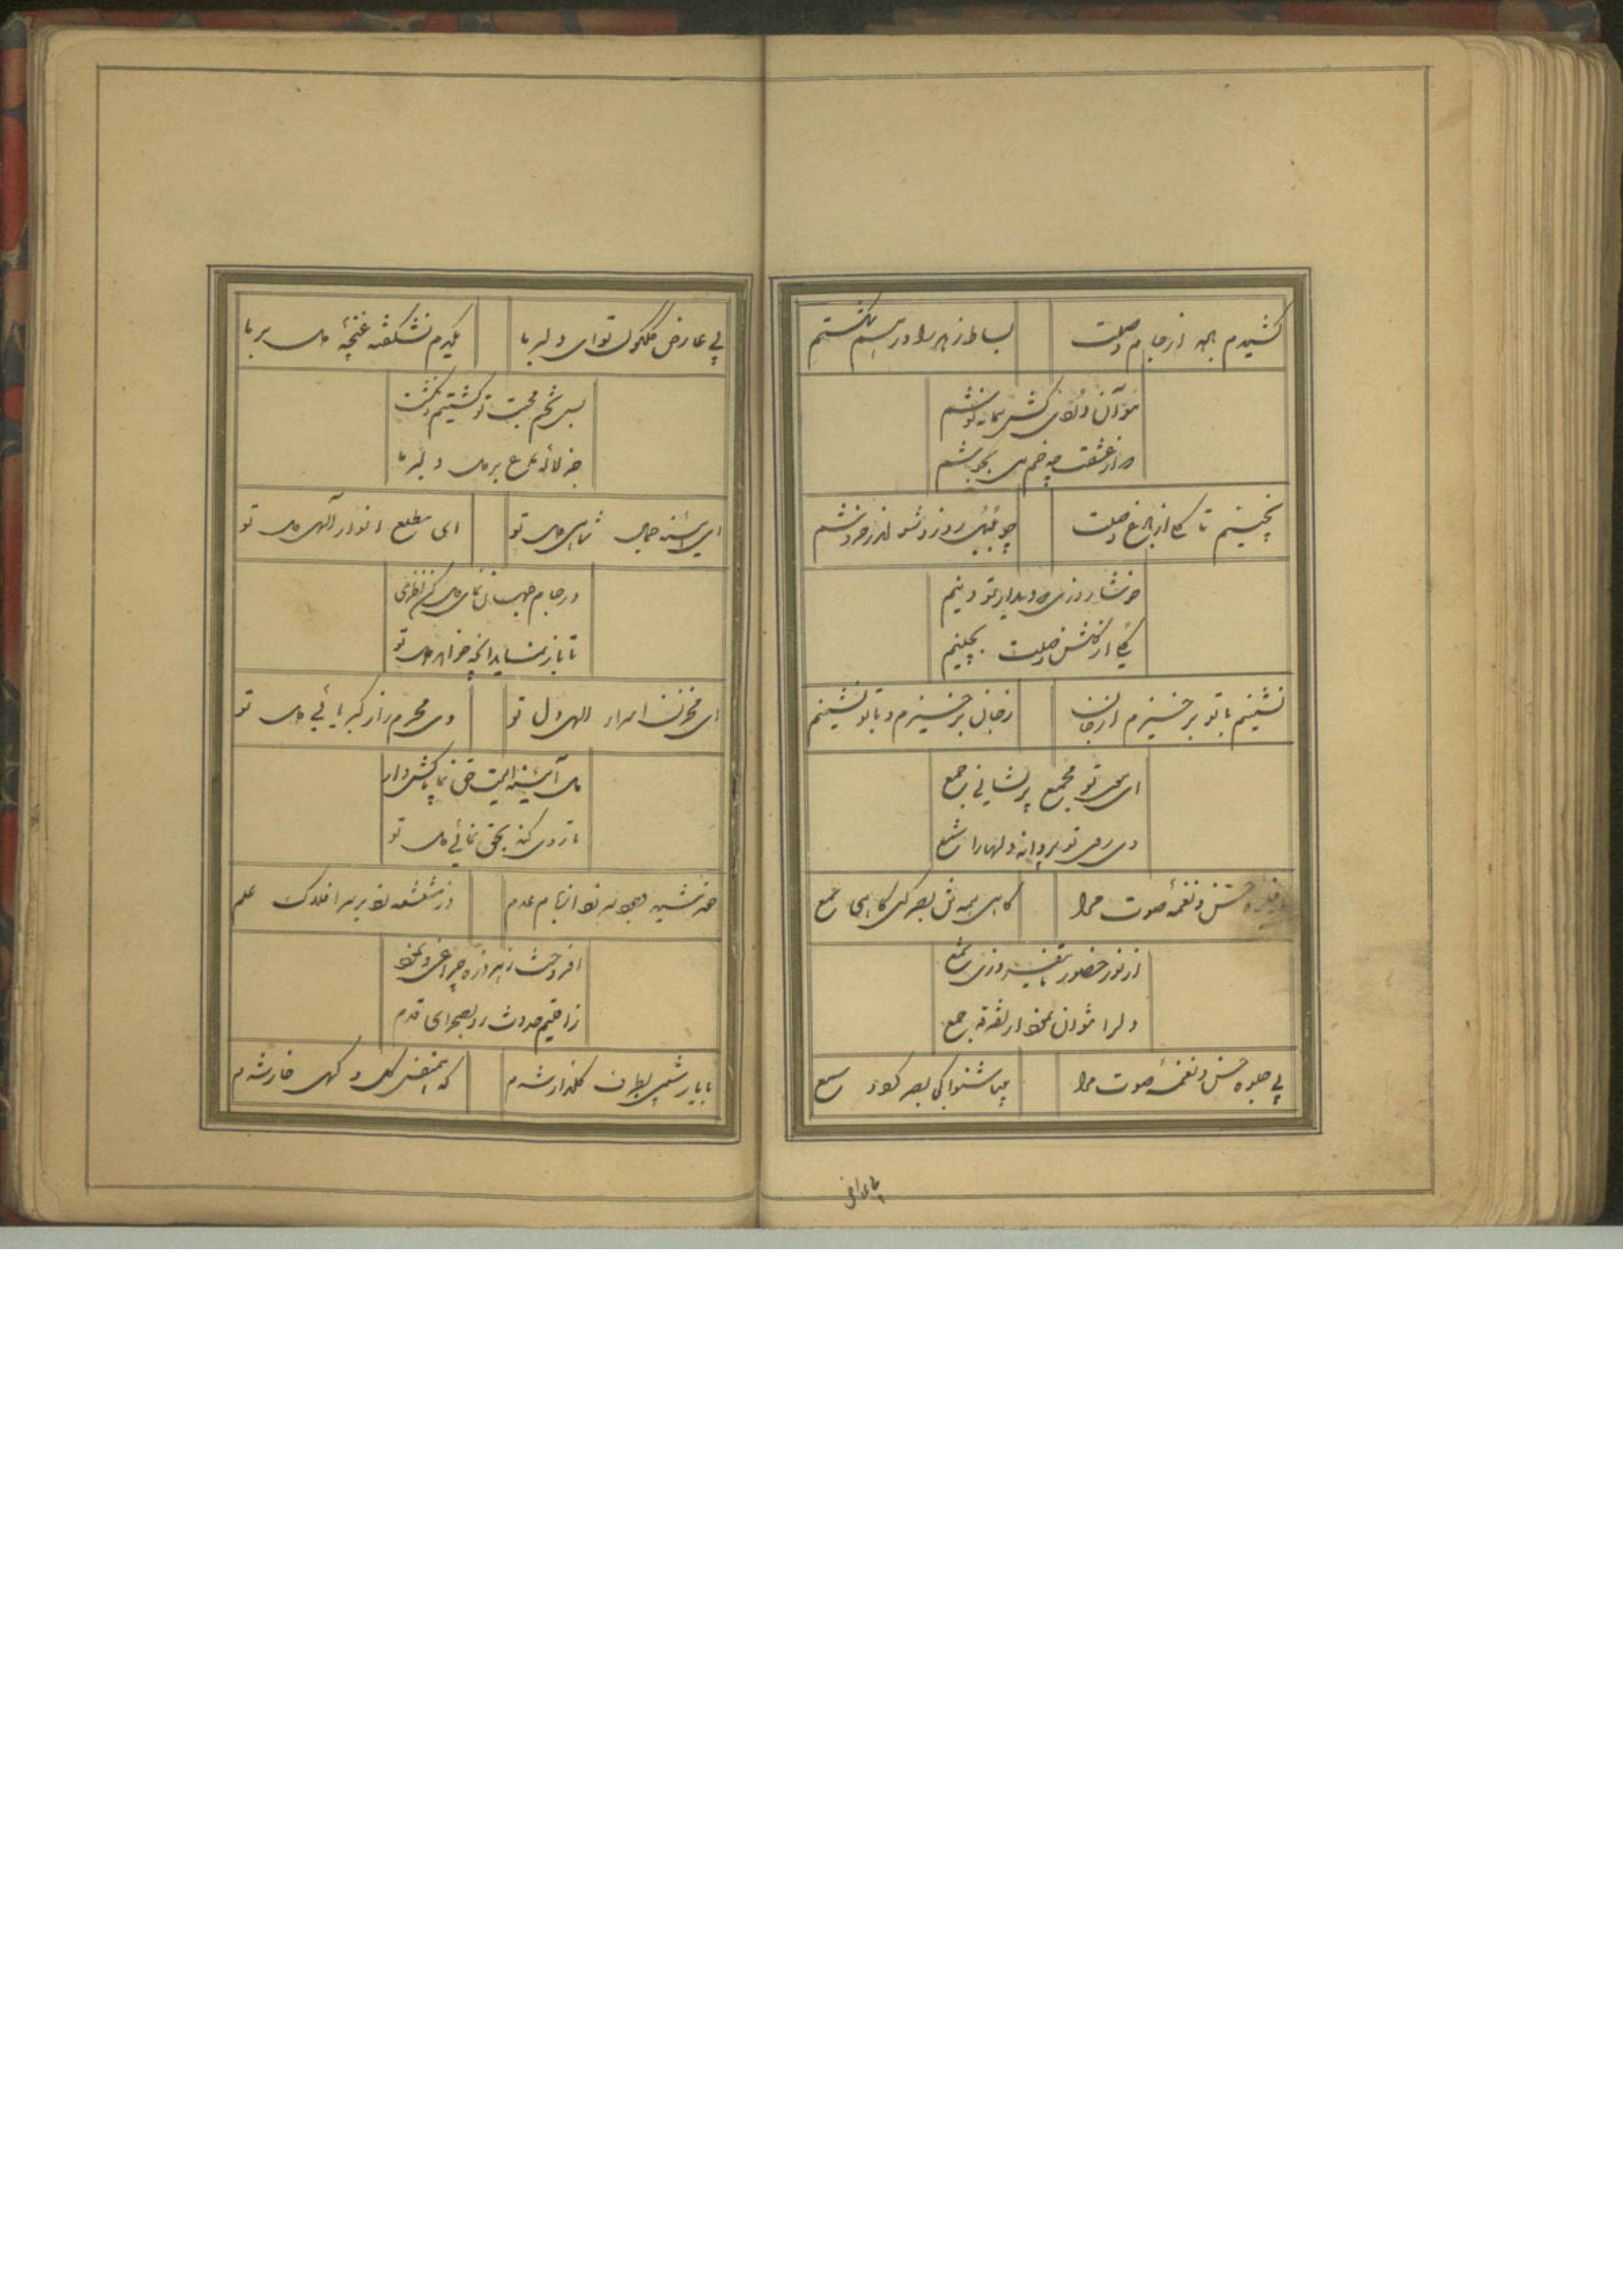 کشیدم جام وصلت
بساط زهد را در هم شکستم
من آن دُردی کش پیمانه نوشم
که از عشقت چو خم می بجوشم
نچینم تا گلی از باغ وصلت
چو بلبل روز و شب اندر خروشم
خوشا روزی که دیدار تو بینم
گلی از گلشن وصلت بچینم
نشینم با تو برخیزم از جان
ز جان برخیزم و با تو نشینم
ای موی تو مجمع پریشانی جمع
وی روی تو پروانه دلها را شمع
جلوه حسن و نغمه صوت مرا
گاهی همه تن بصر کن گاهی سمع
از نور حضور تا نیفروزی شمع
دل را نتوان نمود از تفرقه جمع
بی جلوه حسن و نغمه صوت مرا
بینا شنوا کی بصر گردد سمع
بی عارض گلگون تو ای دلبر ما
یکدم نشکفته غنچهٔ دل بر ما
بس تخم محبت تو کشتیم و نگشت
جز لاله داغ بر دل دلبر ما
ای آئینه جمال شاهی دل تو
ای مطلع انوار آلهی دل تو
در جام جهان نمای دل کن نظری
تا باز نماید آنچه خواهی دل تو
ای مخزن اسرار الهی دل تو
وی محرم راز کبریائی دل تو
دل آئینه ایست حق نما پاکش دار
تا روی کند بحق نمائی دل تو
خورشید وجود سر زد از بام عدم
وز شعشعه زد بر سر افلاک علم
افروخت ز هر ذره چراغی و نمود
ز اقلیم حدوث رو بصحرای قدم
با یار شبی بطرف گلزار شدم
که همنفس گل و گهی خار شدم